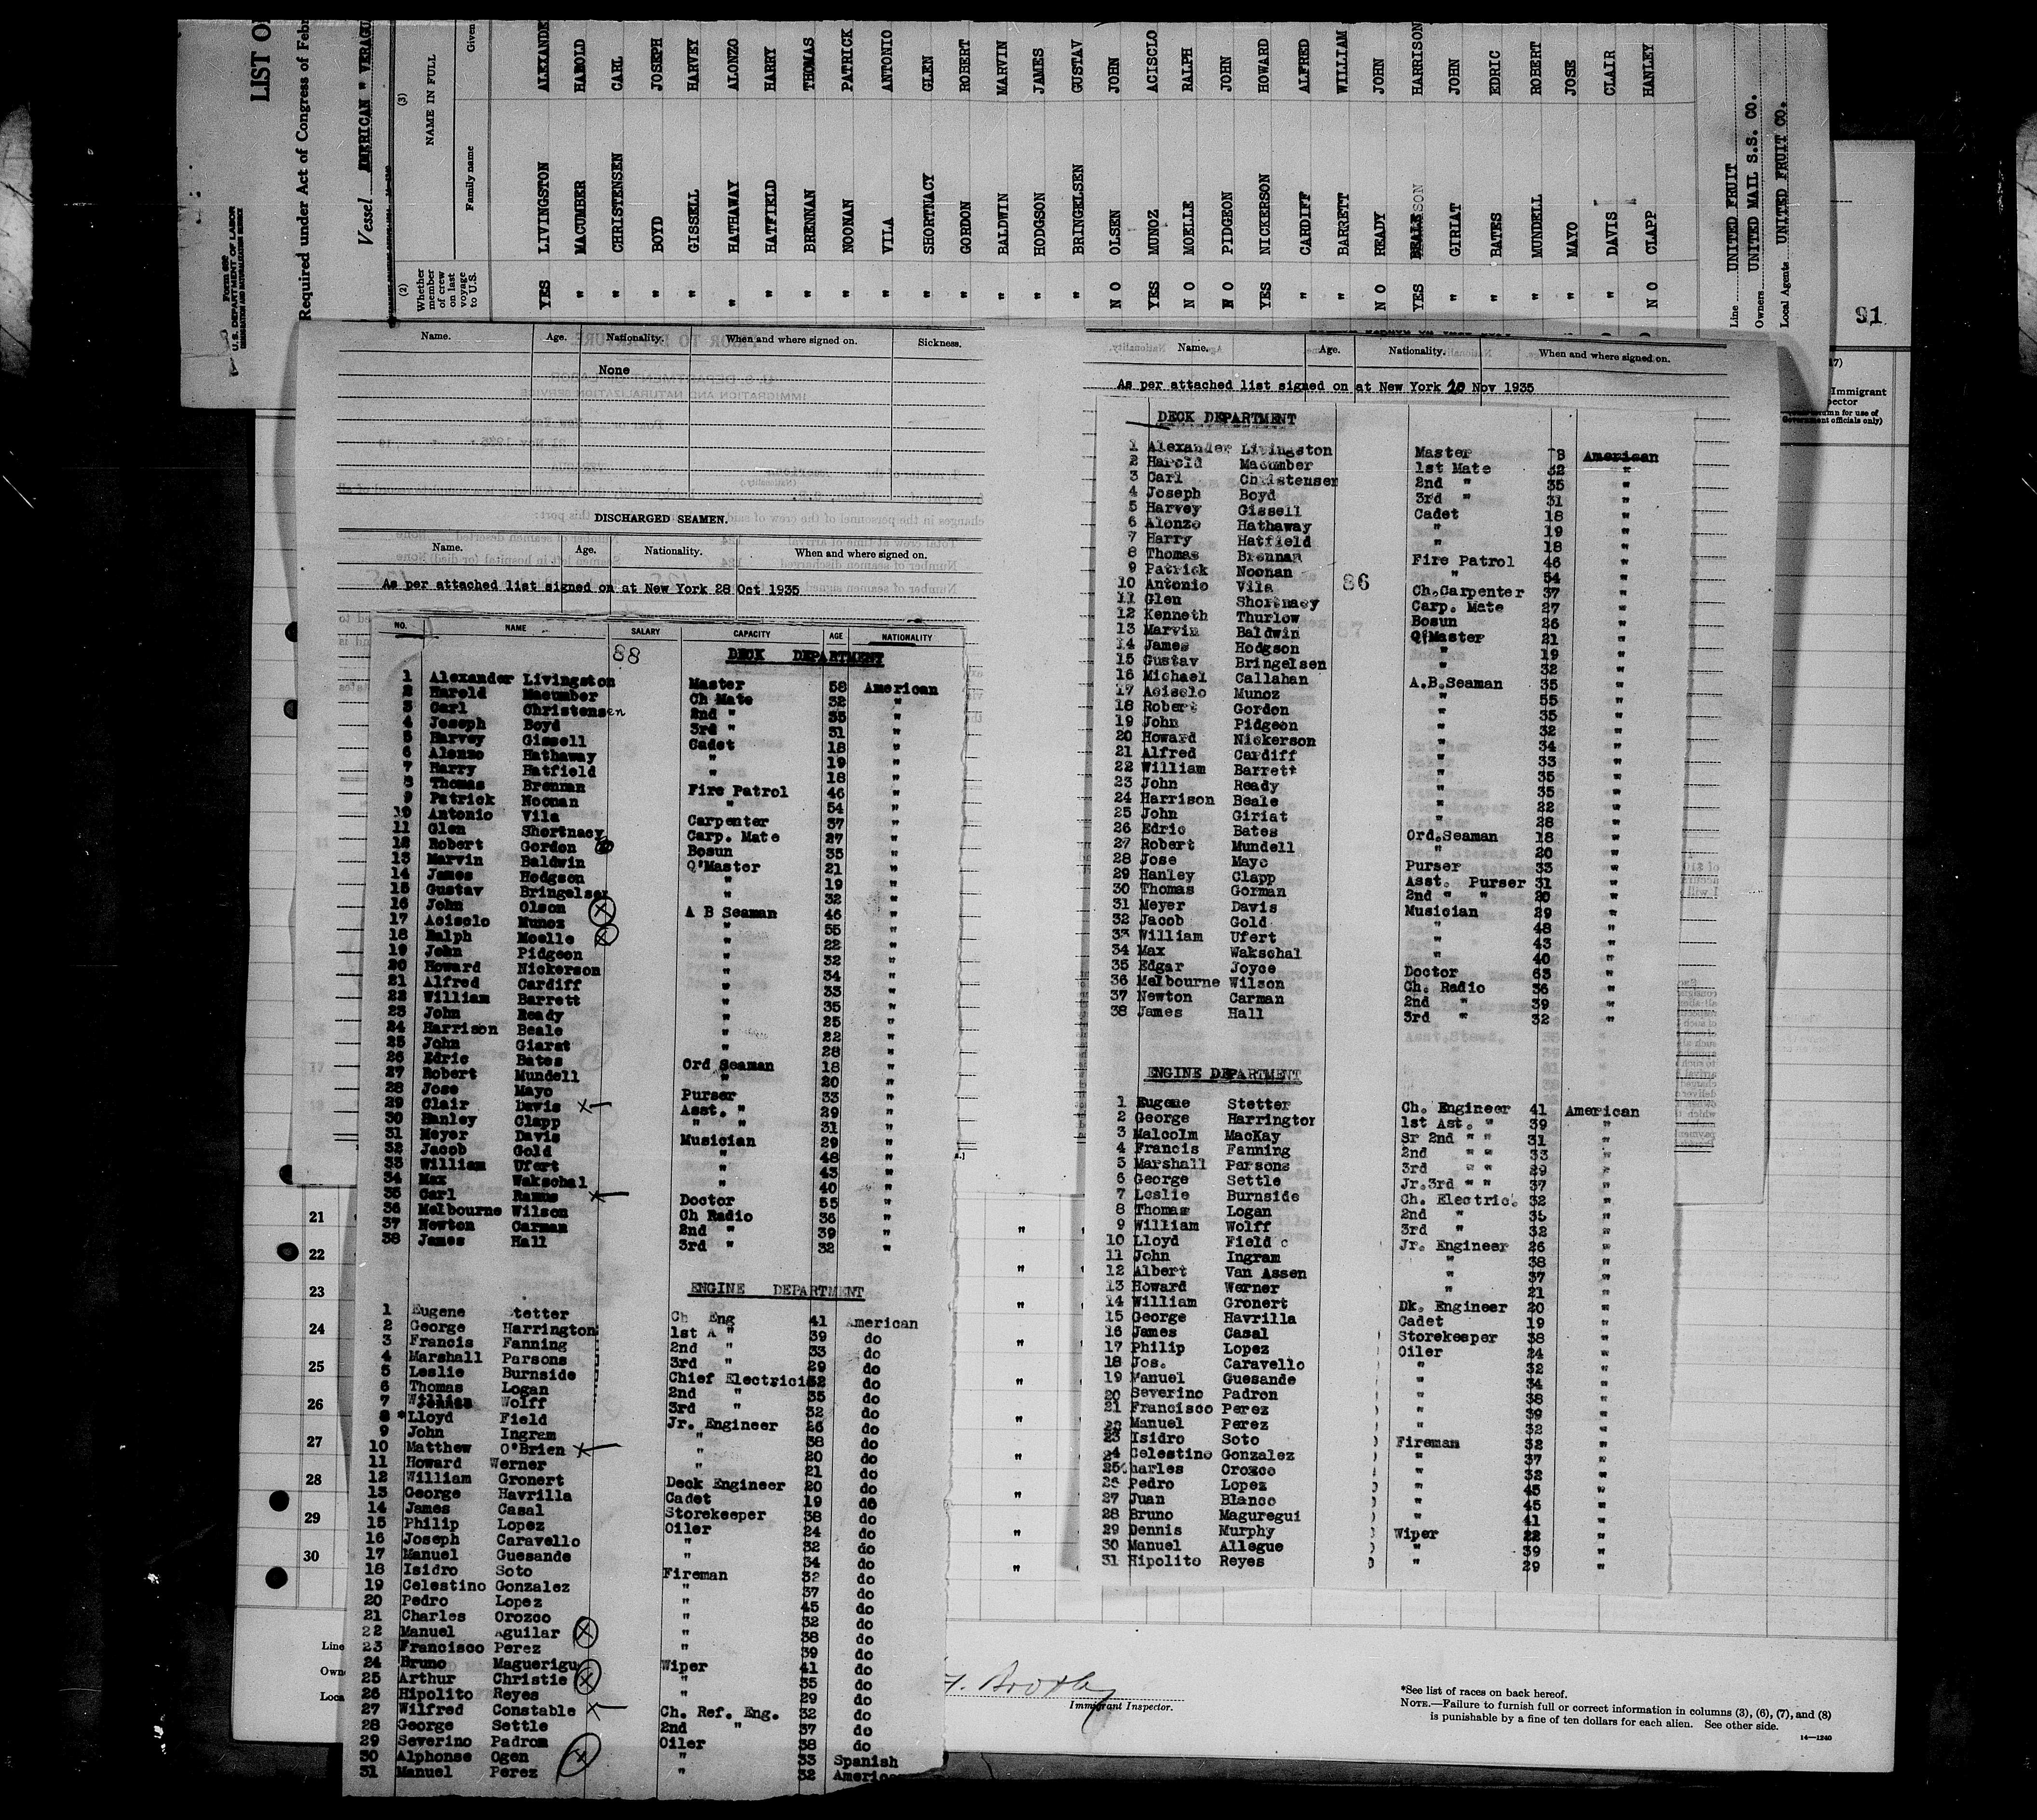 LIST O
Form 680
U. S. DEPARTMENT OF LABOR
IMMIGRATION AND NATURALIZATION SERVICE
Required under Act of Congress of Febr
Vessel AMERICAN " VERAGU
(2) (3)
Whether member of crew on last voyage to U.S. NAME IN FULL
Family name Given
YES LIVINGSTON ALEXANDE
" MACUMBER HAROLD
" CHRISTENSEN CARL
" BOYD JOSEPH
" GISSELL HARVEY
" HATHAWAY ALONZO
" HATFIELD HARRY
" BRENNAN THOMAS
" NOONAN PATRICK
" VILA ANTONIO
" SHORTNACY GLEN
" GORDON ROBERT
" BALDWIN MARVIN
" HODGSON JAMES
" BRINGELSEN GUSTAV
N O OLSEN JOHN
YES MUNOZ ACISCLO
N O MOELLE RALPH
N O PIDGEON JOHN
YES NICKERSON HOWARD
" CARDIFF ALFRED
" BARRETT WILLIAM
N O READY JOHN
YES BEALE HARRISON
" GIRLAT JOHN
" BATES EDRIC
" MUNDELL ROBERT
" MAYO JOSE
" DAVIS CLAIR
N O CLAPP HANLEY
Line UNITED FRUIT
Owners UNITED MAIL S.S. CO.
Local Agents UNITED FRUIT CO.
91
Name. Age. Nationality. When and where signed on. Sickness.
None
DISCHARGED SEAMEN.
Name. Age. Nationality. When and where signed on.
As per attached list signed on at New York 28 Oct 1935
NO. NAME SALARY CAPACITY AGE NATIONALITY
88 DECK DEPARTMENT
1 Alexander Livingston Master 58 American
2 Harold Macumber Ch Mate 32 "
3 Carl Christensen 2nd " 35 "
4 Joseph Boyd 3rd " 31 "
5 Harvey Gissell Cadet 18 "
6 Alonzo Hathaway " 19 "
7 Harry Hatfield " 18 "
8 Thomas Brennan Fire Patrol 46 "
9 Patrick Noonan " 54 "
10 Antonio Vila Carpenter 37 "
11 Glen Shortnacy Carp. Mate 27 "
12 Robert Gordon Bosun 35 "
13 Marvin Baldwin Q'Master 21 "
14 James Hodgson " 19 "
15 Gustav Bringelsen " 32 "
16 John Olson A B Seaman 46 "
17 Acisclo Munoz " 55 "
18 Ralph Moelle " 22 "
19 John Pidgeon " 32 "
20 Howard Nickerson " 34 "
21 Alfred Cardiff " 33 "
22 William Barrett " 35 "
23 John Ready " 25 "
24 Harrison Beale " 22 "
25 John Giarat " 28 "
26 Edric Bates Ord Seaman 18 "
27 Robert Mundell " 20 "
28 Jose Mayo Purser 33 "
29 Clair Davis Asst. " 29 "
30 Hanley Clapp " " 31 "
31 Meyer Davis Musician 29 "
32 Jacob Gold " 48 "
33 William Ufert " 43 "
34 Max Wakschal " 40 "
35 Carl Ramus Doctor 55 "
36 Melbourne Wilson Ch Radio 36 "
37 Newton Carman 2nd " 39 "
38 James Hall 3rd " 32 "
ENGINE DEPARTMENT
1 Eugene Stetter Ch Eng 41 American
2 George Harrington 1st A " 39 do
3 Francis Fanning 2nd " 33 do
4 Marshall Parsons 3rd " 29 do
5 Leslie Burnside Chief Electrici 32 do
6 Thomas Logan 2nd " 35 do
7 William Wolff 3rd " 32 do
8 *Lloyd Field Jr. Engineer 26 do
9 John Ingram " 38 do
10 Matthew O'Brien " 20 do
11 Howard Werner " 21 do
12 William Gronert Deck Engineer 20 do
13 George Havrilla Cadet 19 do
14 James Casal Storekeeper 38 do
15 Philip Lopez Oiler 24 do
16 Joseph Caravello " 32 do
17 Manuel Guesande " 34 do
18 Isidro Soto Fireman 32 do
19 Celestino Gonzalez " 37 do
20 Pedro Lopez " 45 do
21 Charles Orozco " 32 do
22 Manuel Aguilar " 38 do
23 Francisco Perez " 39 do
24 Bruno Maguerigu Wiper 41 do
25 Arthur Christie " 35 do
26 Hipolito Reyes " 29 do
27 Wilfred Constable Ch. Ref. Eng. 32 do
28 George Settle 2nd " 37 do
29 Severino Padrom Oiler 38 do
30 Alphonse Ogen " 33 Spanish
31 Manuel Perez " 32 America
Name. Age. Nationality. When and where signed on.
As per attached list signed on at New York 20 Nov 1935
DECK DEPARTMENT
1 Alexander Livingston Master 8 American
2 Harold Macumber 1st Mate 32 "
3 Carl Christensen 2nd " 35 "
4 Joseph Boyd 3rd " 31 "
5 Harvey Gissell Cadet 18 "
6 Alonzo Hathaway " 19 "
7 Harry Hatfield " 18 "
8 Thomas Brennan Fire Patrol 46 "
9 Patrick Noonan " 54 "
10 Antonio Vila 86 Ch.Carpenter 37 "
11 Glen Shortnacy Carp. Mate 27 "
12 Kenneth Thurlow Bosun 26 "
13 Marvin Baldwin 87 Q'Master 21 "
14 James Hodgson " 19 "
15 Gustav Bringelsen " 32 "
16 Michael Callahan A.B.Seaman 35 "
17 Acisclo Munoz " 55 "
18 Robert Gordon " 35 "
19 John Pidgeon " 32 "
20 Howard Nickerson " 34 "
21 Alfred Cardiff " 33 "
22 William Barrett " 35 "
23 John Ready " 35 "
24 Harrison Beale " 22 "
25 John Giriat " 28 "
26 Edric Bates Ord.Seaman 18 "
27 Robert Mundell " 20 "
28 Jose Mayo Purser 33 "
29 Hanley Clapp Asst. Purser 31 "
30 Thomas Gorman 2nd " " 20 "
31 Meyer Davis Musician 29 "
32 Jacob Gold " 48 "
33 William Ufert " 43 "
34 Max Wakschal " 40 "
35 Edgar Joyce Doctor 63 "
36 Melbourne Wilson Ch. Radio 36 "
37 Newton Carman 2nd " 39 "
38 James Hall 3rd " 32 "
ENGINE DEPARTMENT
1 Eugene Stetter Ch. Engineer 41 American
2 George Harrington 1st Ast. " 39 "
3 Malcolm MacKay Sr 2nd " " 31 "
4 Francis Fanning 2nd " " 33 "
5 Marshall Parsons 3rd " " 29 "
6 George Settle Jr.3rd " " 37 "
7 Leslie Burnside Ch. Electric. 32 "
8 Thomas Logan 2nd " 35 "
9 William Wolff 3rd " 32 "
10 Lloyd Field Jr. Engineer 26 "
11 John Ingram " 38 "
12 Albert Van Assen " 37 "
13 Howard Werner " 21 "
14 William Gronert Dk. Engineer 20 "
15 George Havrilla Cadet 19 "
16 James Casal Storekeeper 38 "
17 Philip Lopez Oiler 24 "
18 Jos. Caravello " 32 "
19 Manuel Guesande " 34 "
20 Severino Padron " 38 "
21 Francisco Perez " 39 "
22 Manuel Perez " 32 "
23 Isidro Soto Fireman 32 "
24 Celestino Gonzalez " 37 "
25 Charles Orozco " 32 "
26 Pedro Lopez " 45 "
27 Juan Blanco " 45 "
28 Bruno Maguregui " 41 "
29 Dennis Murphy Wiper 22 "
30 Manuel Allegue " 39 "
31 Hipolito Reyes " 29 "
17)
Immigrant
pector
umn for use of
Government officials only)
21
22 "
23 "
24 "
25 "
26 "
27 "
28 "
29 "
30 "
Line
Own
Loca
Immigrant Inspector.
*See list of races on back hereof.
NOTE.—Failure to furnish full or correct information in columns (3), (6), (7), and (8)
is punishable by a fine of ten dollars for each alien. See other side.
14—1240